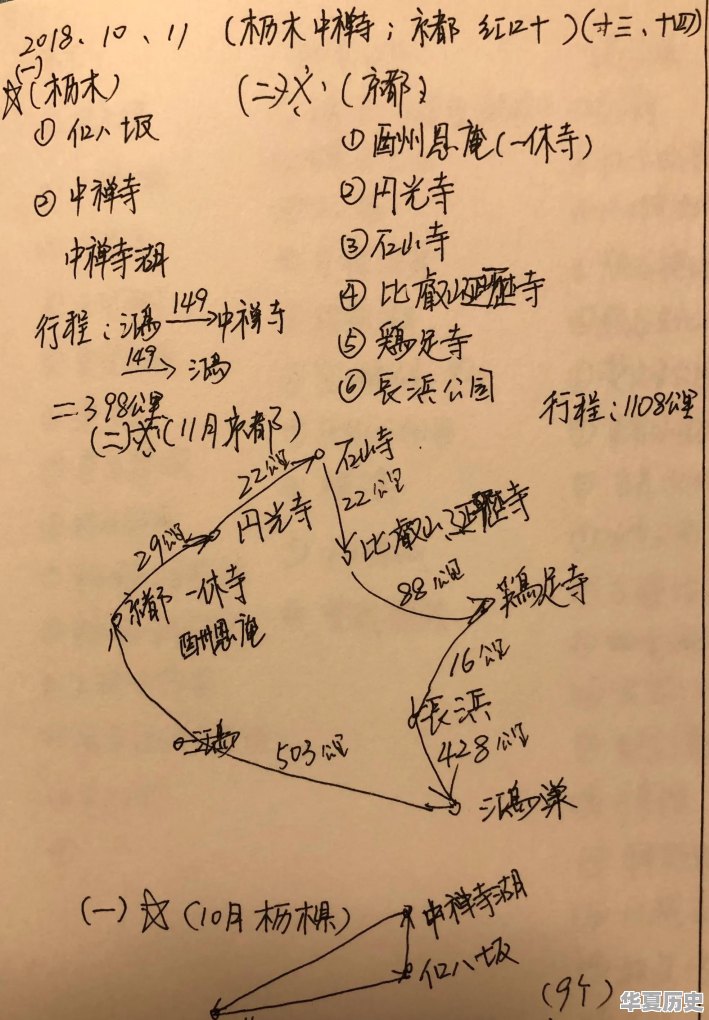 2018、10、11 (枥木中禅寺；京都 红叶)(十三、十四)
(一)
☆(枥木)
① 伊八坂
② 中禅寺
中禅寺湖
行程：鸿 149→中禅寺
149→鸿
=398公里
(二)☆(京都)
① 酬州恩庵(一休寺)
② 円光寺
③ 石山寺
④ 比叡山延暦寺
⑤ 鶏足寺
⑥ 長浜公园
行程：1108公里
(二)☆(11月京都)
石山寺
22公里
22公里
円光寺
29公里
比叡山延暦寺
88公里
鶏足寺
京都 一休寺
酬州恩庵
16公里
長浜
428公里
鸿
503公里
鸿巣
(一)☆(10月枥木県)
中禅寺湖
伊八坂
(9个)
华夏历史